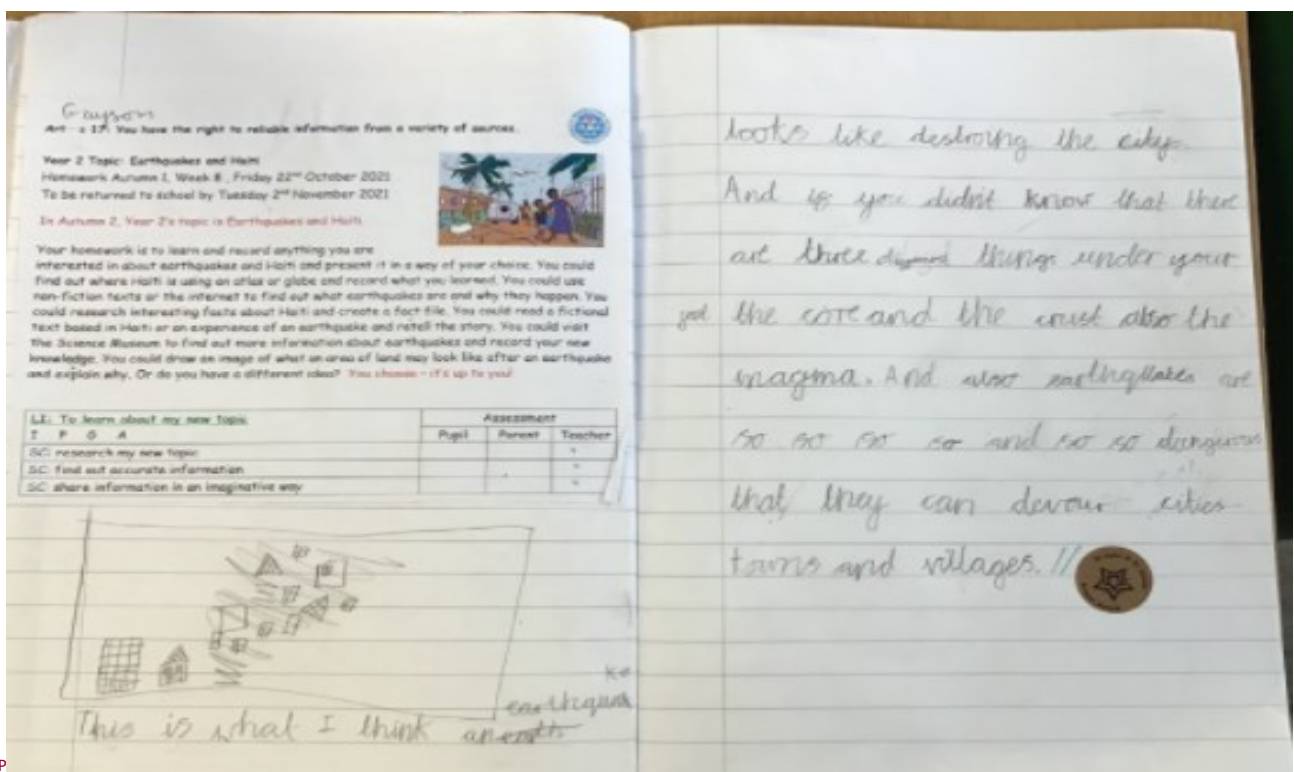 Grayson
Article 17: You have the right to reliable information from a variety of sources.
Year 2 Topic: Earthquakes and Haiti
Homework Autumn 1, Week 8, Friday 22nd October 2021
To be returned to school by Tuesday 2nd November 2021
In Autumn 2, Year 2's topic is Earthquakes and Haiti
Your homework is to learn and record anything you are
interested in about earthquakes and Haiti and present it in a way of your choice. You could
find out where Haiti is using an atlas or globe and record what you learned. You could use
non-fiction texts or the internet to find out what earthquakes are and why they happen. You
could research interesting facts about Haiti and create a fact file. You could read a fictional
text based in Haiti or an experience of an earthquake and retell the story. You could visit
The Science Museum to find out more information about earthquakes and record your new
knowledge. You could draw an image of what an area of land may look like after an earthquake
and explain why. Or do you have a different idea? You choose – it's up to you!
LI: To learn about my new topic Assessment
I P G A Pupil Parent Teacher
SC: research my new topic
SC: find out accurate information
SC: share information in an imaginative way
ke
earthqua
This is what I think an
looks like destroing the city.
And if you didn't know that there
are three things under your
the core and the crust also the
magma. And also earthqllakes are
so so so so and so so dangirous
that they can devour cities
towns and villages. //
P